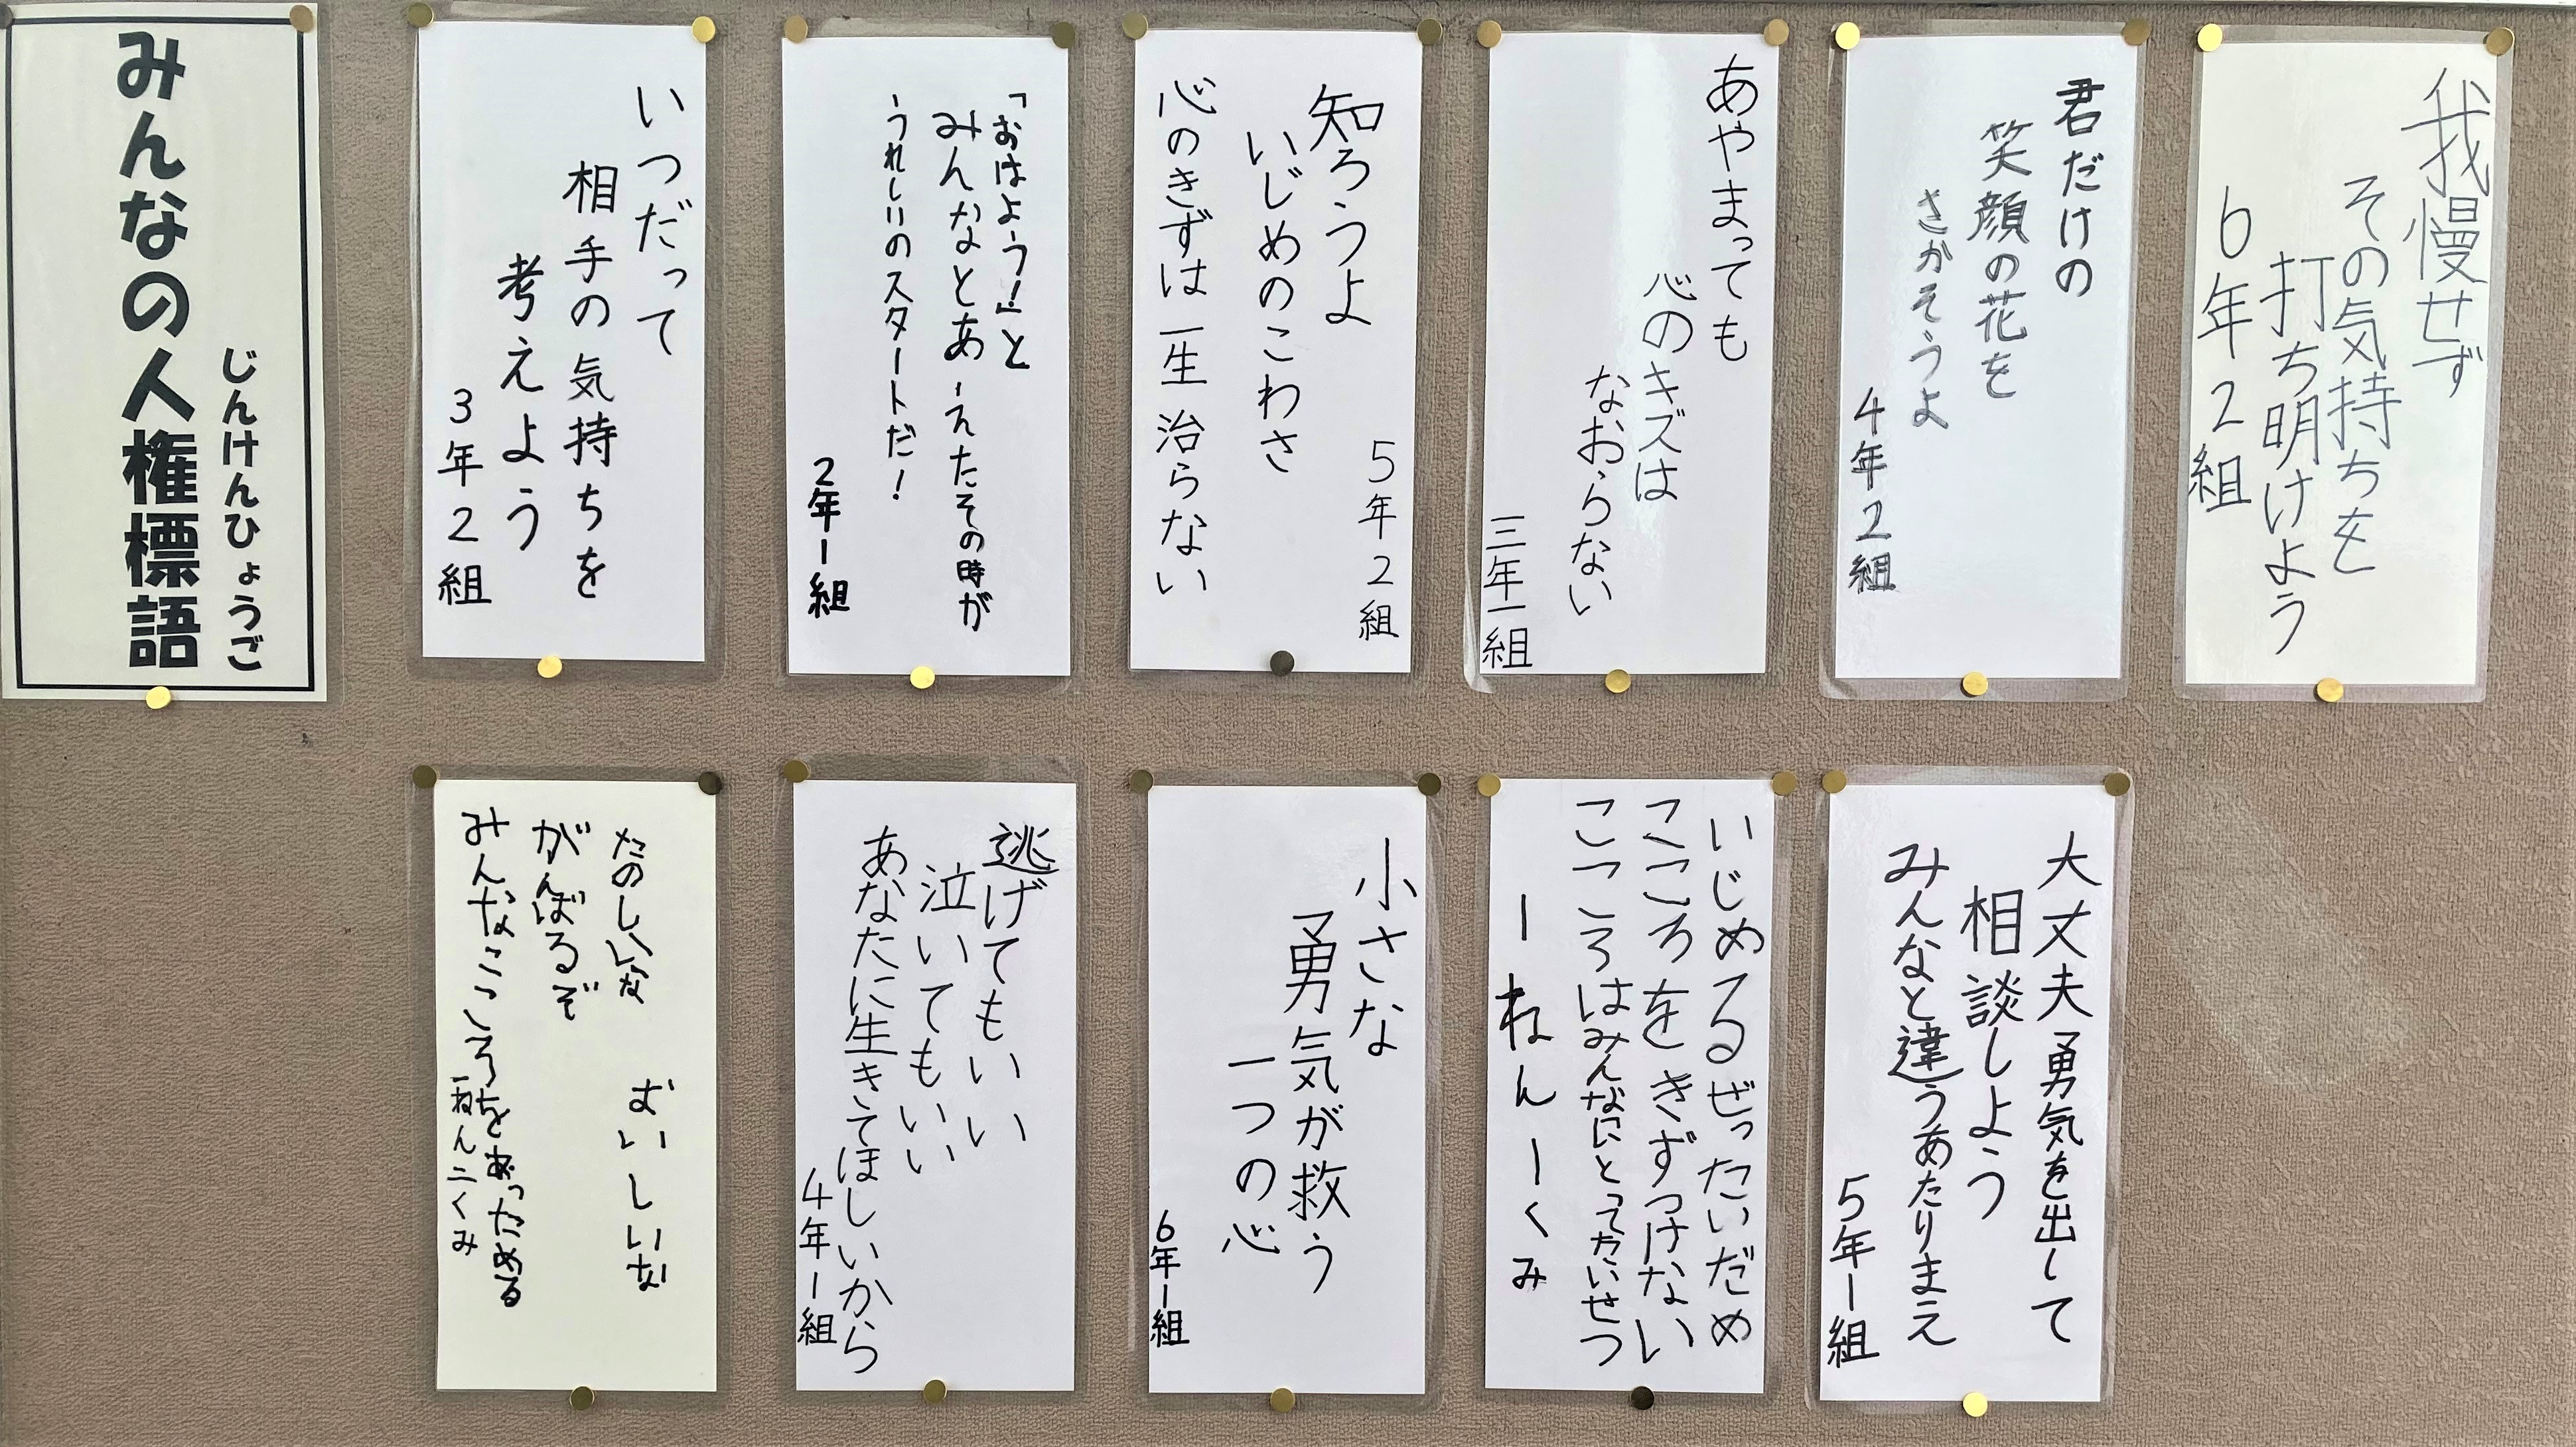 みんなの人権標語
じんけんひょうご
いつだって
相手の気持ちを
考えよう
3年2組
「おはよう!」と
みんなとあいえたその時が
うれしいのスタートだ!
2年1組
5年2組
知ろうよ
いじめのこわさ
心のきずは一生治らない
あやまっても
心のキズは
なおらない
三年一組
君だけの
笑顔の花を
さがそうよ
4年2組
我慢せず
その気持ちを
打ち明けよう
6年2組
たのしいな おいしいな
がんばるぞ
みんなこころをあっためる
一ねん二くみ
逃げてもいい
泣いてもいい
あなたに生きてほしいから
4年1組
小さな
勇気が救う
一つの心
6年1組
いじめるぜったいだめ
こころをきずつけない
こころはみんなにとってたいせつ
1ねん1くみ
大丈夫勇気を出して
相談しよう
みんなと違うあたりまえ
5年1組